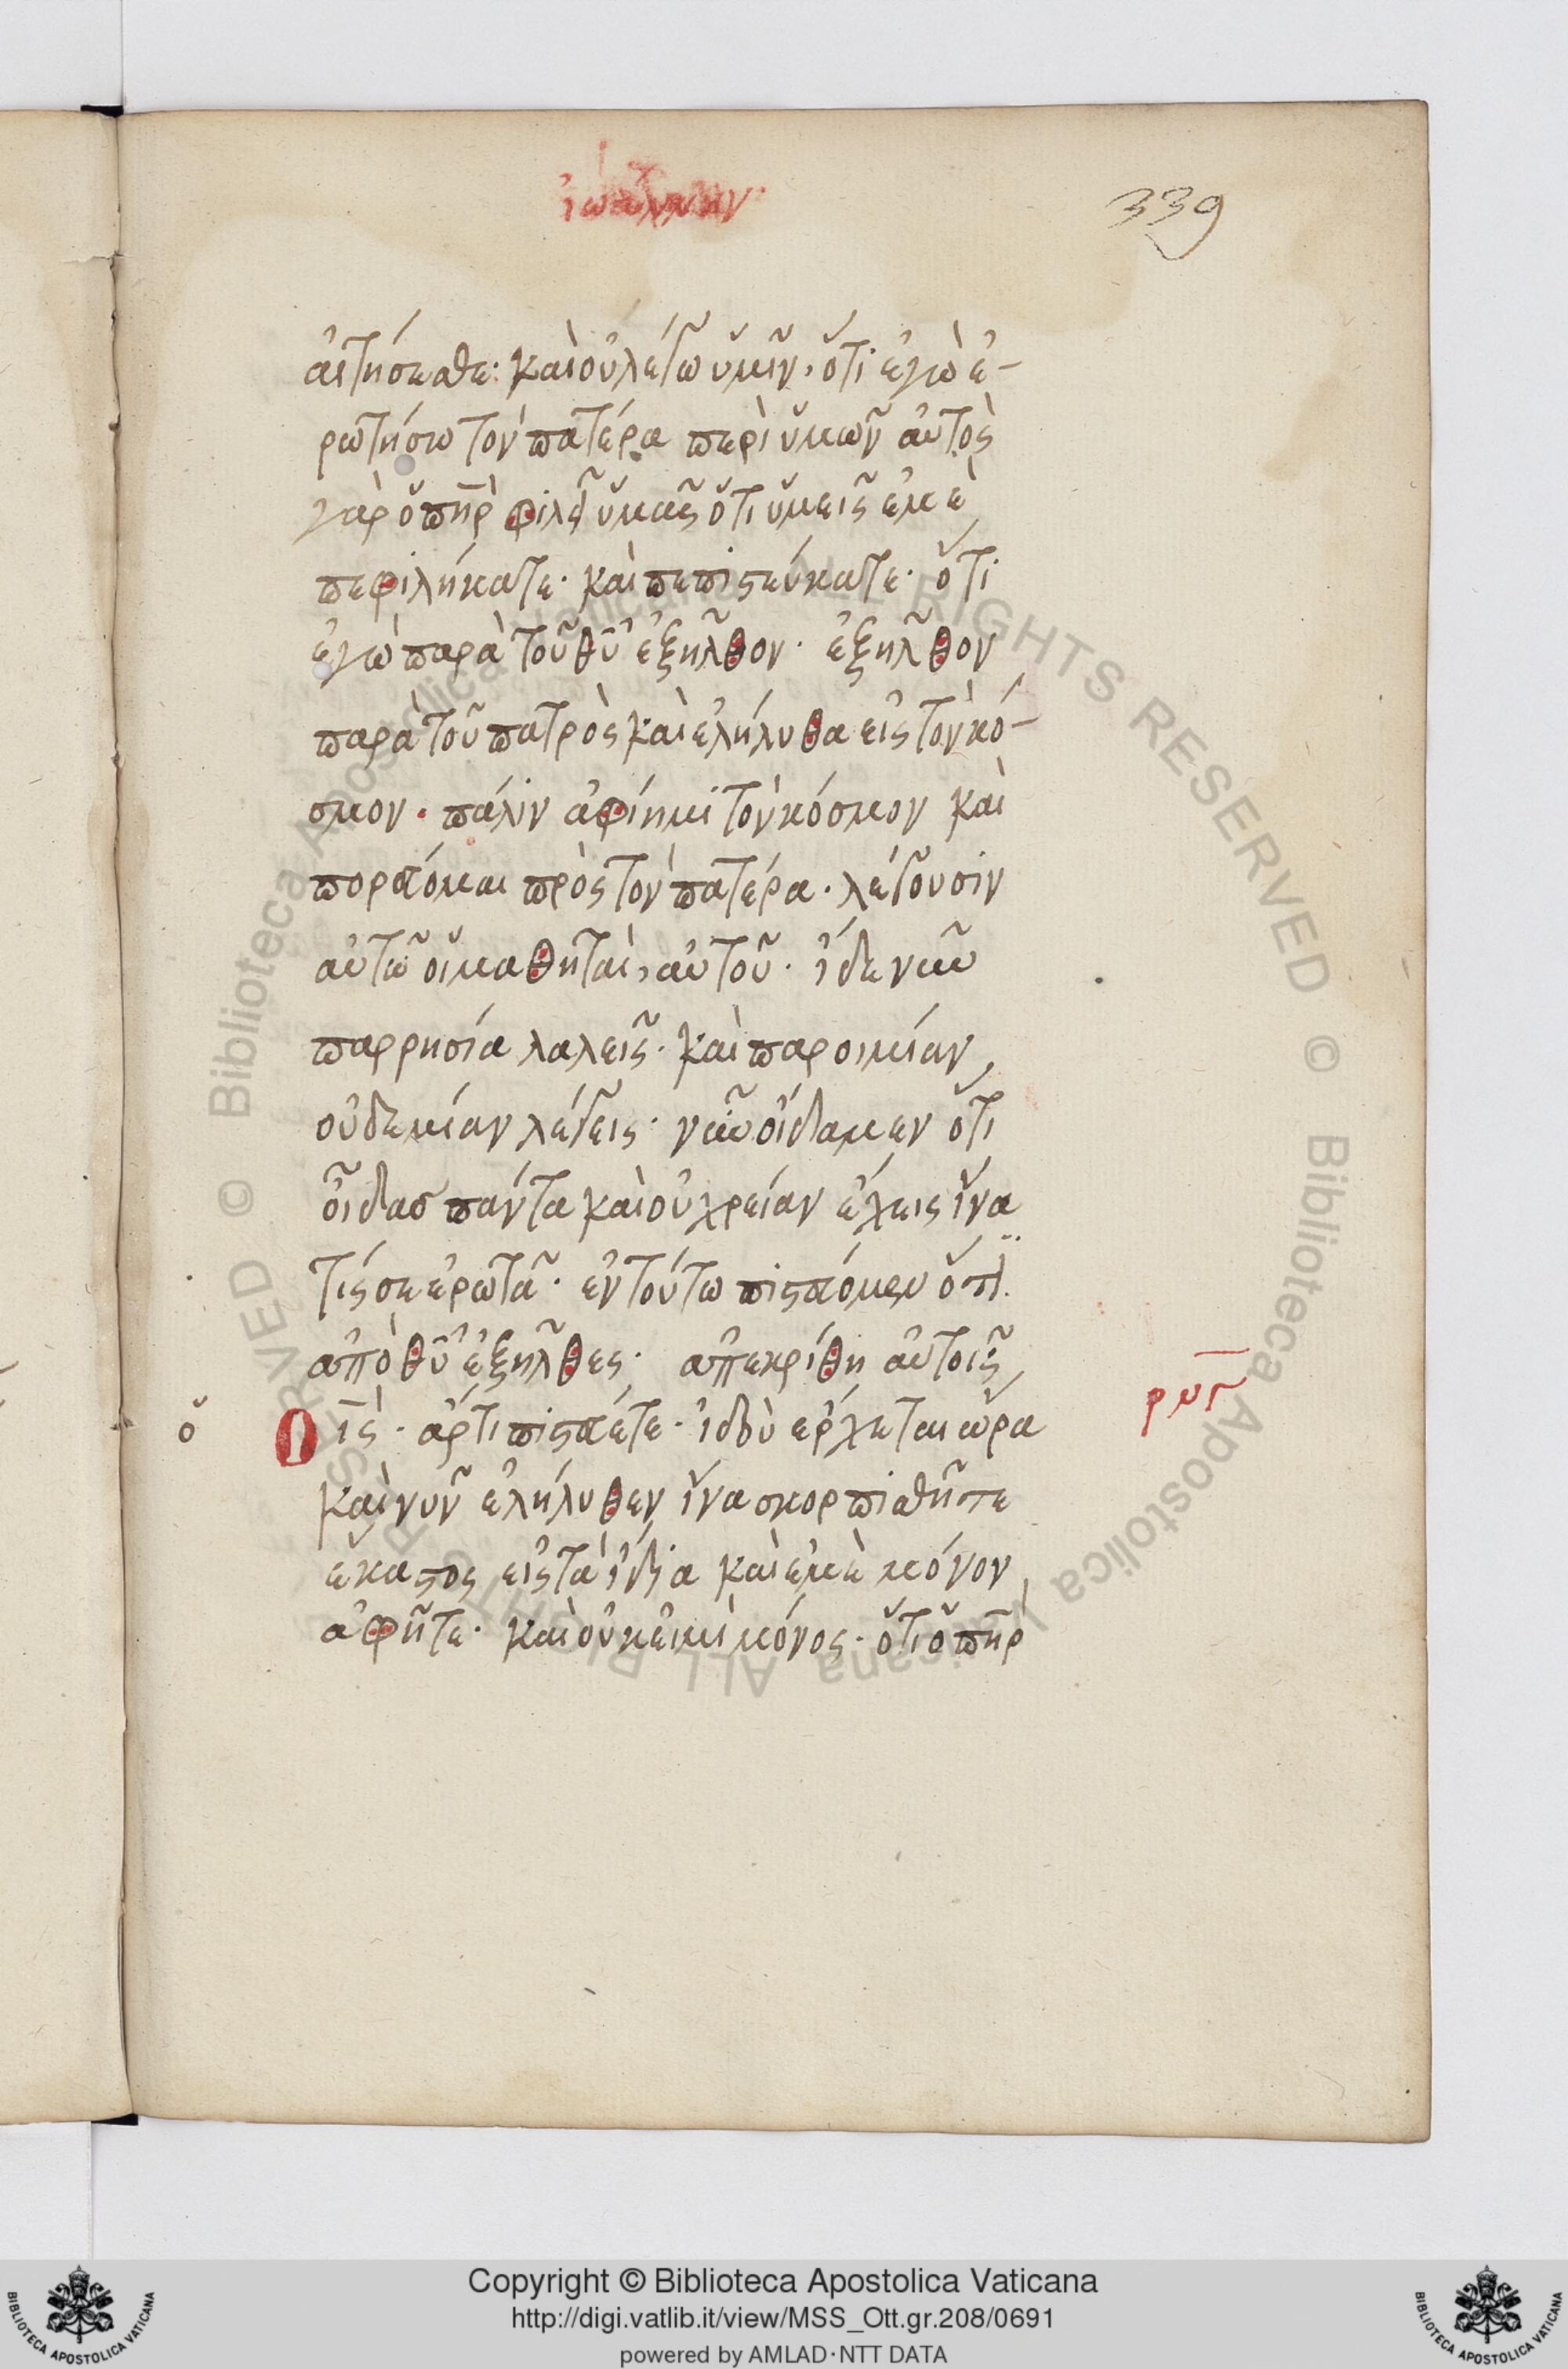 ἰωάννην·
339
αἰτήσεσθε· καὶ οὐ λέγω ὑμῖν, ὅτι ἐγὼ ἐ-
ρωτήσω τὸν πατέρα περὶ ὑμῶν αὐτὸς
γὰρ ὁ πηρ φιλεῖ ὑμᾶς ὅτι ὑμεῖς ἐμὲ
πεφιλήκατε· καὶ πεπιστεύκατε· ὅτι
ἐγὼ παρὰ τοῦ θυ ἐξῆλθον· ἐξῆλθον
παρὰ τοῦ πατρὸς καὶ ἐλήλυθα εἰς τὸν κό-
σμον· πάλιν ἀφίημι τὸν κόσμον καὶ
πορεύομαι πρὸς τὸν πατέρα· λέγουσιν
αὐτῶ οἱ μαθηταὶ, αὐτοῦ· ἴδε νῦν
παρρησία λαλεῖς· καὶ παροιμίαν
οὐδεμίαν λέγεις· νῦν οἴδαμεν ὅτι
οἶδασ πάντα καὶ οὐ χρείαν ἔχεις ἵνα
τίς σε ἐρωτᾶ· ἐν τούτω πιστεύομεν ὅτι
ἀπὸ θυ ἐξῆλθες· ἀπεκρίθη αὐτοῖς
ὁ
Ο ις· ἄρτι πιστεύετε· ἰδοὺ ἔρχεται ὥρα
ρμγ
καὶ νῦν ἐλήλυθεν ἵνα σκορπισθῆτε
ἕκαστος εἰς τὰ ἴδια καὶ ἐμὲ μόνον
ἀφῆτε· καὶ οὐκ εἰμὶ μόνος· ὅτι ὁ πηρ
Copyright © Biblioteca Apostolica Vaticana
http://digi.vatlib.it/view/MSS_Ott.gr.208/0691
powered by AMLAD·NTT DATA